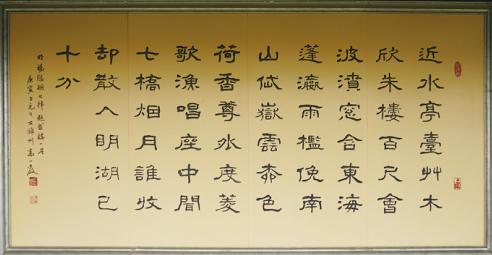 近水亭臺艸木
欣朱樓百尺會
波濆窓合東海
蓬瀛雨檻俛南
山岱嶽雲柰色
荷香尊外度菱
歌漁唱座中聞
七橋烟月誰收
却散入明湖已
十分